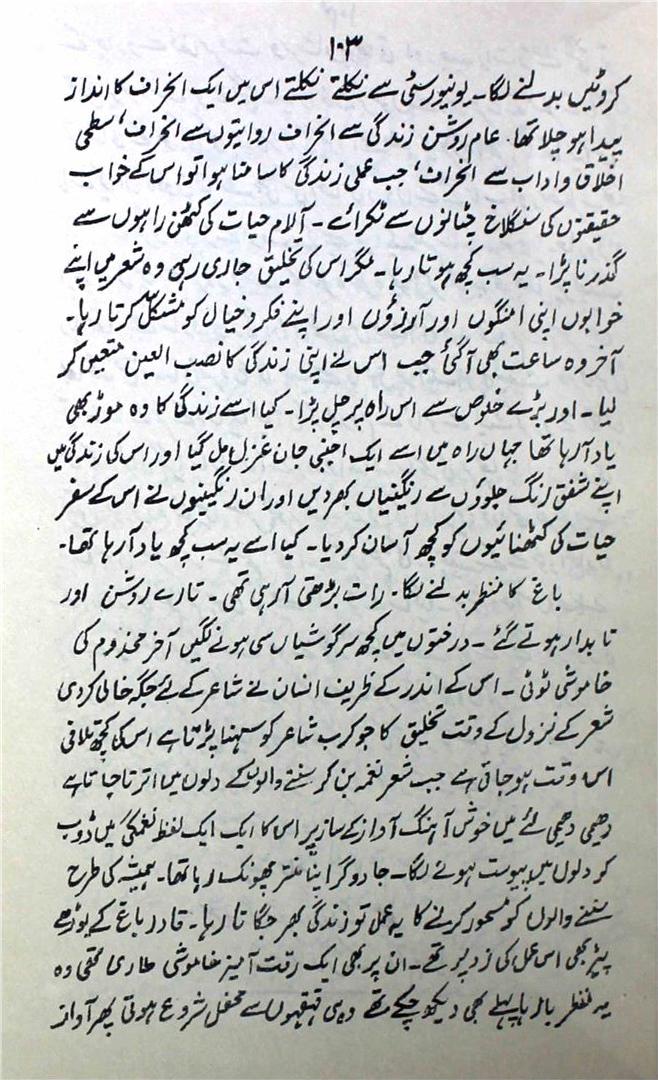 ۱۰۳
کروٹیں بدلنے لگا۔ یونیورسٹی سے نکلتے نکلتے اس میں ایک انحراف کا انداز
پیدا ہو چلا تھا۔ عام روشن زندگی سے انحراف روایتوں سے انحراف، سطحی
اخلاق و اداب سے انحراف، جب عملی زندگی کا سامنا ہوا تو اس کے خواب
حقیقتوں کی سنگلاخ چٹانوں سے ٹکرائے۔ آلام حیات کی کٹھن راہوں سے
گذرنا پڑا۔ یہ سب کچھ ہوتا رہا۔ مگر اس کی تخلیق جاری رہی وہ شعر میں اپنے
خوابوں اپنی امنگوں اور آرزؤں اور اپنے فکر و خیال کو مشکل کرتا رہا۔
آخر وہ ساعت بھی آ گئی جب اس نے اپنی زندگی کا نصب العین متعین کر
لیا۔ اور بڑے خلوص سے اس راہ پر چل پڑا۔ کیا اسے زندگی کا وہ موڑ بھی
یاد آ رہا تھا جہاں راہ میں اسے ایک اجنبی جان غزل مل گیا اور اس کی زندگی میں
اپنے شفق رنگ جلوؤں سے رنگینیاں بھر دیں اور ان رنگینیوں نے اس کے سفر
حیات کی کٹھنائیوں کو کچھ آسان کر دیا۔ کیا اسے یہ سب کچھ یاد آ رہا تھا۔
باغ کا منظر بدلنے لگا۔ رات بڑھتی آ رہی تھی۔ تارے روشن اور
تابدار ہوتے گئے۔ درختوں میں کچھ سرگوشیاں سی ہونے لگیں آخر مخدوم کی
خاموشی ٹوٹی۔ اس کے اندر کے ظریف انسان نے شاعر کے لئے جگہ خالی کر دی
شعر کے نزول کے وقت تخلیق کا جو کرب شاعر کو سہنا پڑتا ہے اس کی کچھ تلافی
اس وقت ہو جاتی ہے جب شعر نغمہ بن کر سننے والوں کے دلوں میں اترتا جاتا ہے
دھیمی دھیمی لئے میں خوش آہنگ آواز کے ساز پر اس کا ایک ایک لفظ نغمگی میں ڈوب
کر دلوں میں پیوست ہونے لگا۔ جادوگر اپنا منتر پھونک رہا تھا۔ ہمیشہ کی طرح
سننے والوں کو مسحور کرنے کا یہ عمل تو زندگی بھر جگاتا رہا۔ قادر باغ کے بوڑھے
پیڑ بھی اس عمل کی زد پر تھے۔ ان پر بھی ایک رقت آمیز خاموشی طاری تھی وہ
یہ منظر بارہا پہلے بھی دیکھ چکے تھے وہی قہقہوں سے محفل شروع ہوتی پھر آواز